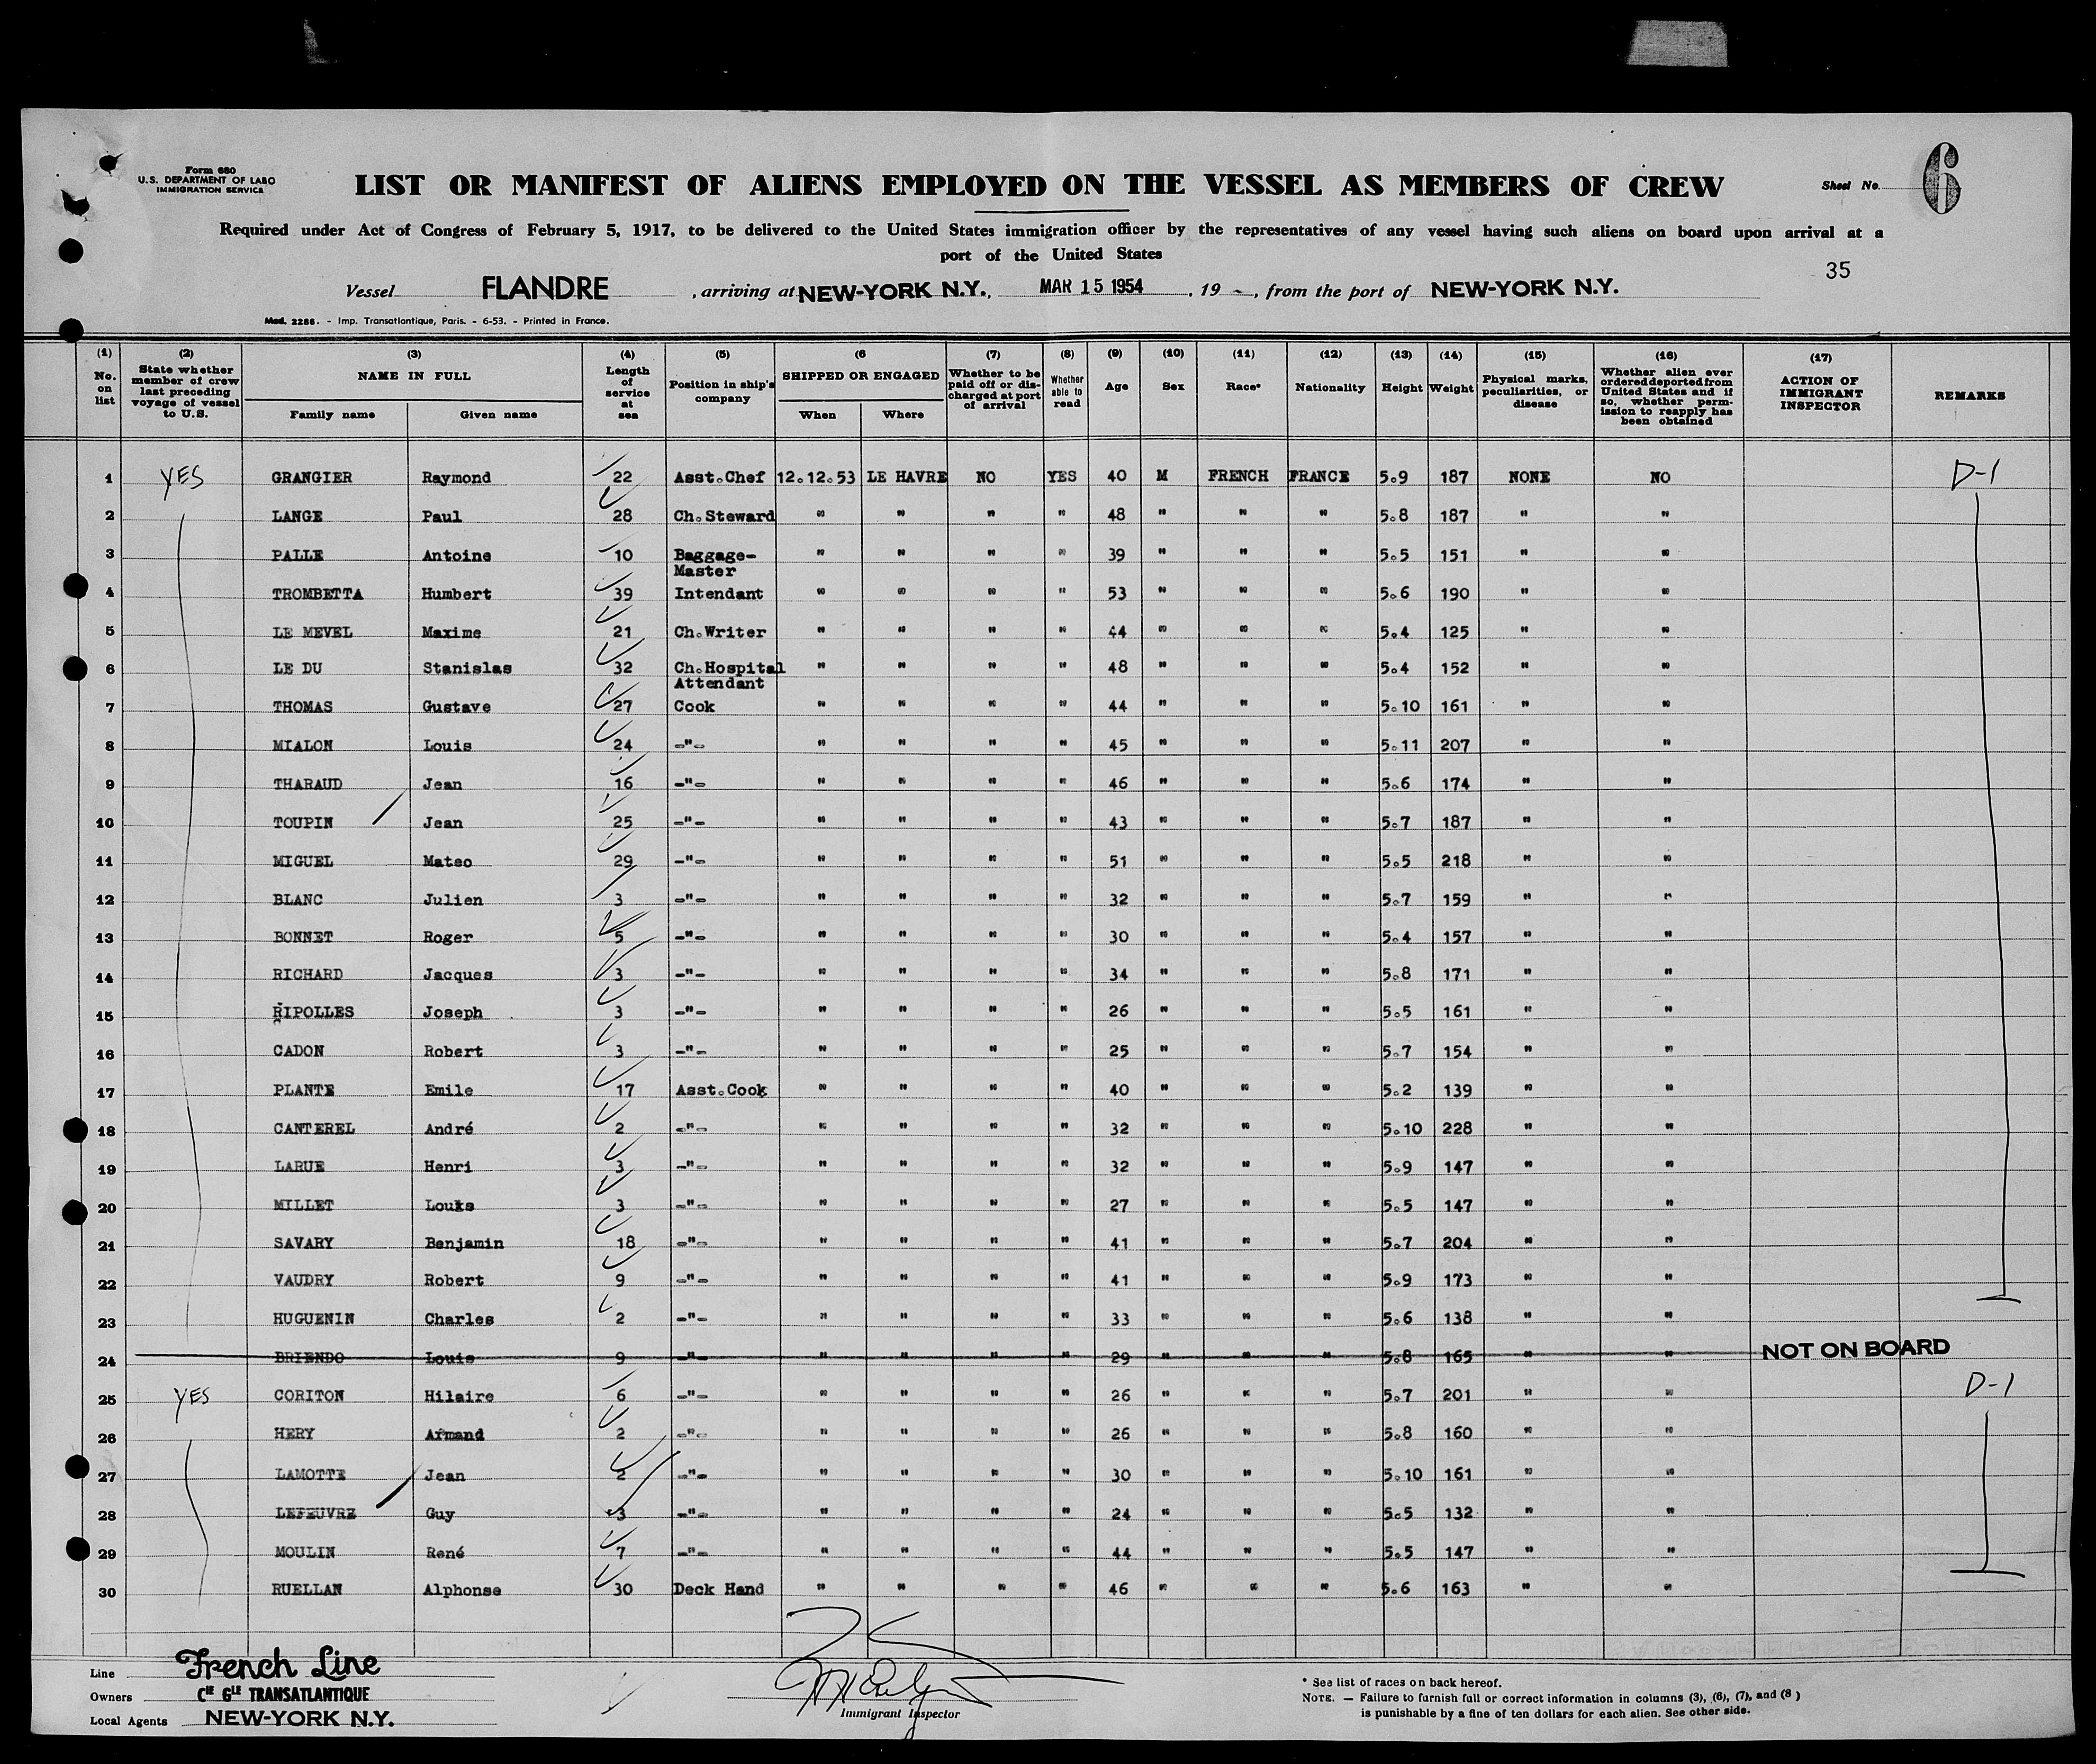 Form 680
U.S. DEPARTMENT OF LABO
IMMIGRATION SERVICE
LIST OR MANIFEST OF ALIENS EMPLOYED ON THE VESSEL AS MEMBERS OF CREW
Sheet No. 6
Required under Act of Congress of February 5, 1917, to be delivered to the United States immigration officer by the representatives of any vessel having such aliens on board upon arrival at a
port of the United States
35
Vessel FLANDRE , arriving at NEW-YORK N.Y., MAR 15 1954 , 19 , from the port of NEW-YORK N.Y.
Mod. 2266. - Imp. Transatlantique, Paris. - 6-53. - Printed in France.
(1) No. on list (2) State whether member of crew last preceding voyage of vessel to U.S. (3) NAME IN FULL Family name Given name (4) Length of service at sea (5) Position in ship's company (6 SHIPPED OR ENGAGED When Where (7) Whether to be paid off or dis- charged at port of arrival (8) Whether able to read (9) Age (10) Sex (11) Race* (12) Nationality (13) Height (14) Weight (15) Physical marks, peculiarities, or disease (16) Whether alien ever ordered deported from United States and if so, whether perm- ission to reapply has been obtained (17) ACTION OF IMMIGRANT INSPECTOR REMARKS
1 YES GRANGIER Raymond 22 Asst.Chef 12.12.53 LE HAVRE NO YES 40 M FRENCH FRANCE 5.9 187 NONE NO D-1
2 LANGE Paul 28 Ch.Steward " " " " 48 " " " 5.8 187 " "
3 PALLE Antoine 10 Baggage- Master " " " " 39 " " " 5.5 151 " "
4 TROMBETTA Humbert 39 Intendant " " " " 53 " " " 5.6 190 " "
5 LE MEVEL Maxime 21 Ch.Writer " " " " 44 " " " 5.4 125 " "
6 LE DU Stanislas 32 Ch.Hospital Attendant " " " " 48 " " " 5.4 152 " "
7 THOMAS Gustave 27 Cook " " " " 44 " " " 5.10 161 " "
8 MIALON Louis 24 -"- " " " " 45 " " " 5.11 207 " "
9 THARAUD Jean 16 -"- " " " " 46 " " " 5.6 174 " "
10 TOUPIN Jean 25 -"- " " " " 43 " " " 5.7 187 " "
11 MIGUEL Mateo 29 -"- " " " " 51 " " " 5.5 218 " "
12 BLANC Julien 3 -"- " " " " 32 " " " 5.7 159 " "
13 BONNET Roger 5 -"- " " " " 30 " " " 5.4 157 " "
14 RICHARD Jacques 3 -"- " " " " 34 " " " 5.8 171 " "
15 RIPOLLES Joseph 3 -"- " " " " 26 " " " 5.5 161 " "
16 CADON Robert 3 -"- " " " " 25 " " " 5.7 154 " "
17 PLANTE Emile 17 Asst.Cook " " " " 40 " " " 5.2 139 " "
18 CANTEREL André 2 -"- " " " " 32 " " " 5.10 228 " "
19 LARUE Henri 3 -"- " " " " 32 " " " 5.9 147 " "
20 MILLET Louis 3 -"- " " " " 27 " " " 5.5 147 " "
21 SAVARY Benjamin 18 -"- " " " " 41 " " " 5.7 204 " "
22 VAUDRY Robert 9 -"- " " " " 41 " " " 5.9 173 " "
23 HUGUENIN Charles 2 -"- " " " " 33 " " " 5.6 138 " "
24 BRIENDO Louis 9 -"- " " " " 29 " " " 5.8 165 " " NOT ON BOARD
25 YES CORITON Hilaire 6 -"- " " " " 26 " " " 5.7 201 " " D-1
26 HERY Armand 2 -"- " " " " 26 " " " 5.8 160 " "
27 LAMOTTE Jean 2 -"- " " " " 30 " " " 5.10 161 " "
28 LEFEUVRE Guy 3 -"- " " " " 24 " " " 5.5 132 " "
29 MOULIN René 7 -"- " " " " 44 " " " 5.5 147 " "
30 RUELLAN Alphonse 30 Deck Hand " " " " 46 " " " 5.6 163 " "
Line French Line
Owners Cie Gle TRANSATLANTIQUE
Local Agents NEW-YORK N.Y.
Immigrant Inspector
* See list of races on back hereof.
NOTE. — Failure to furnish full or correct information in columns (3), (6), (7), and (8 )
is punishable by a fine of ten dollars for each alien. See other side.